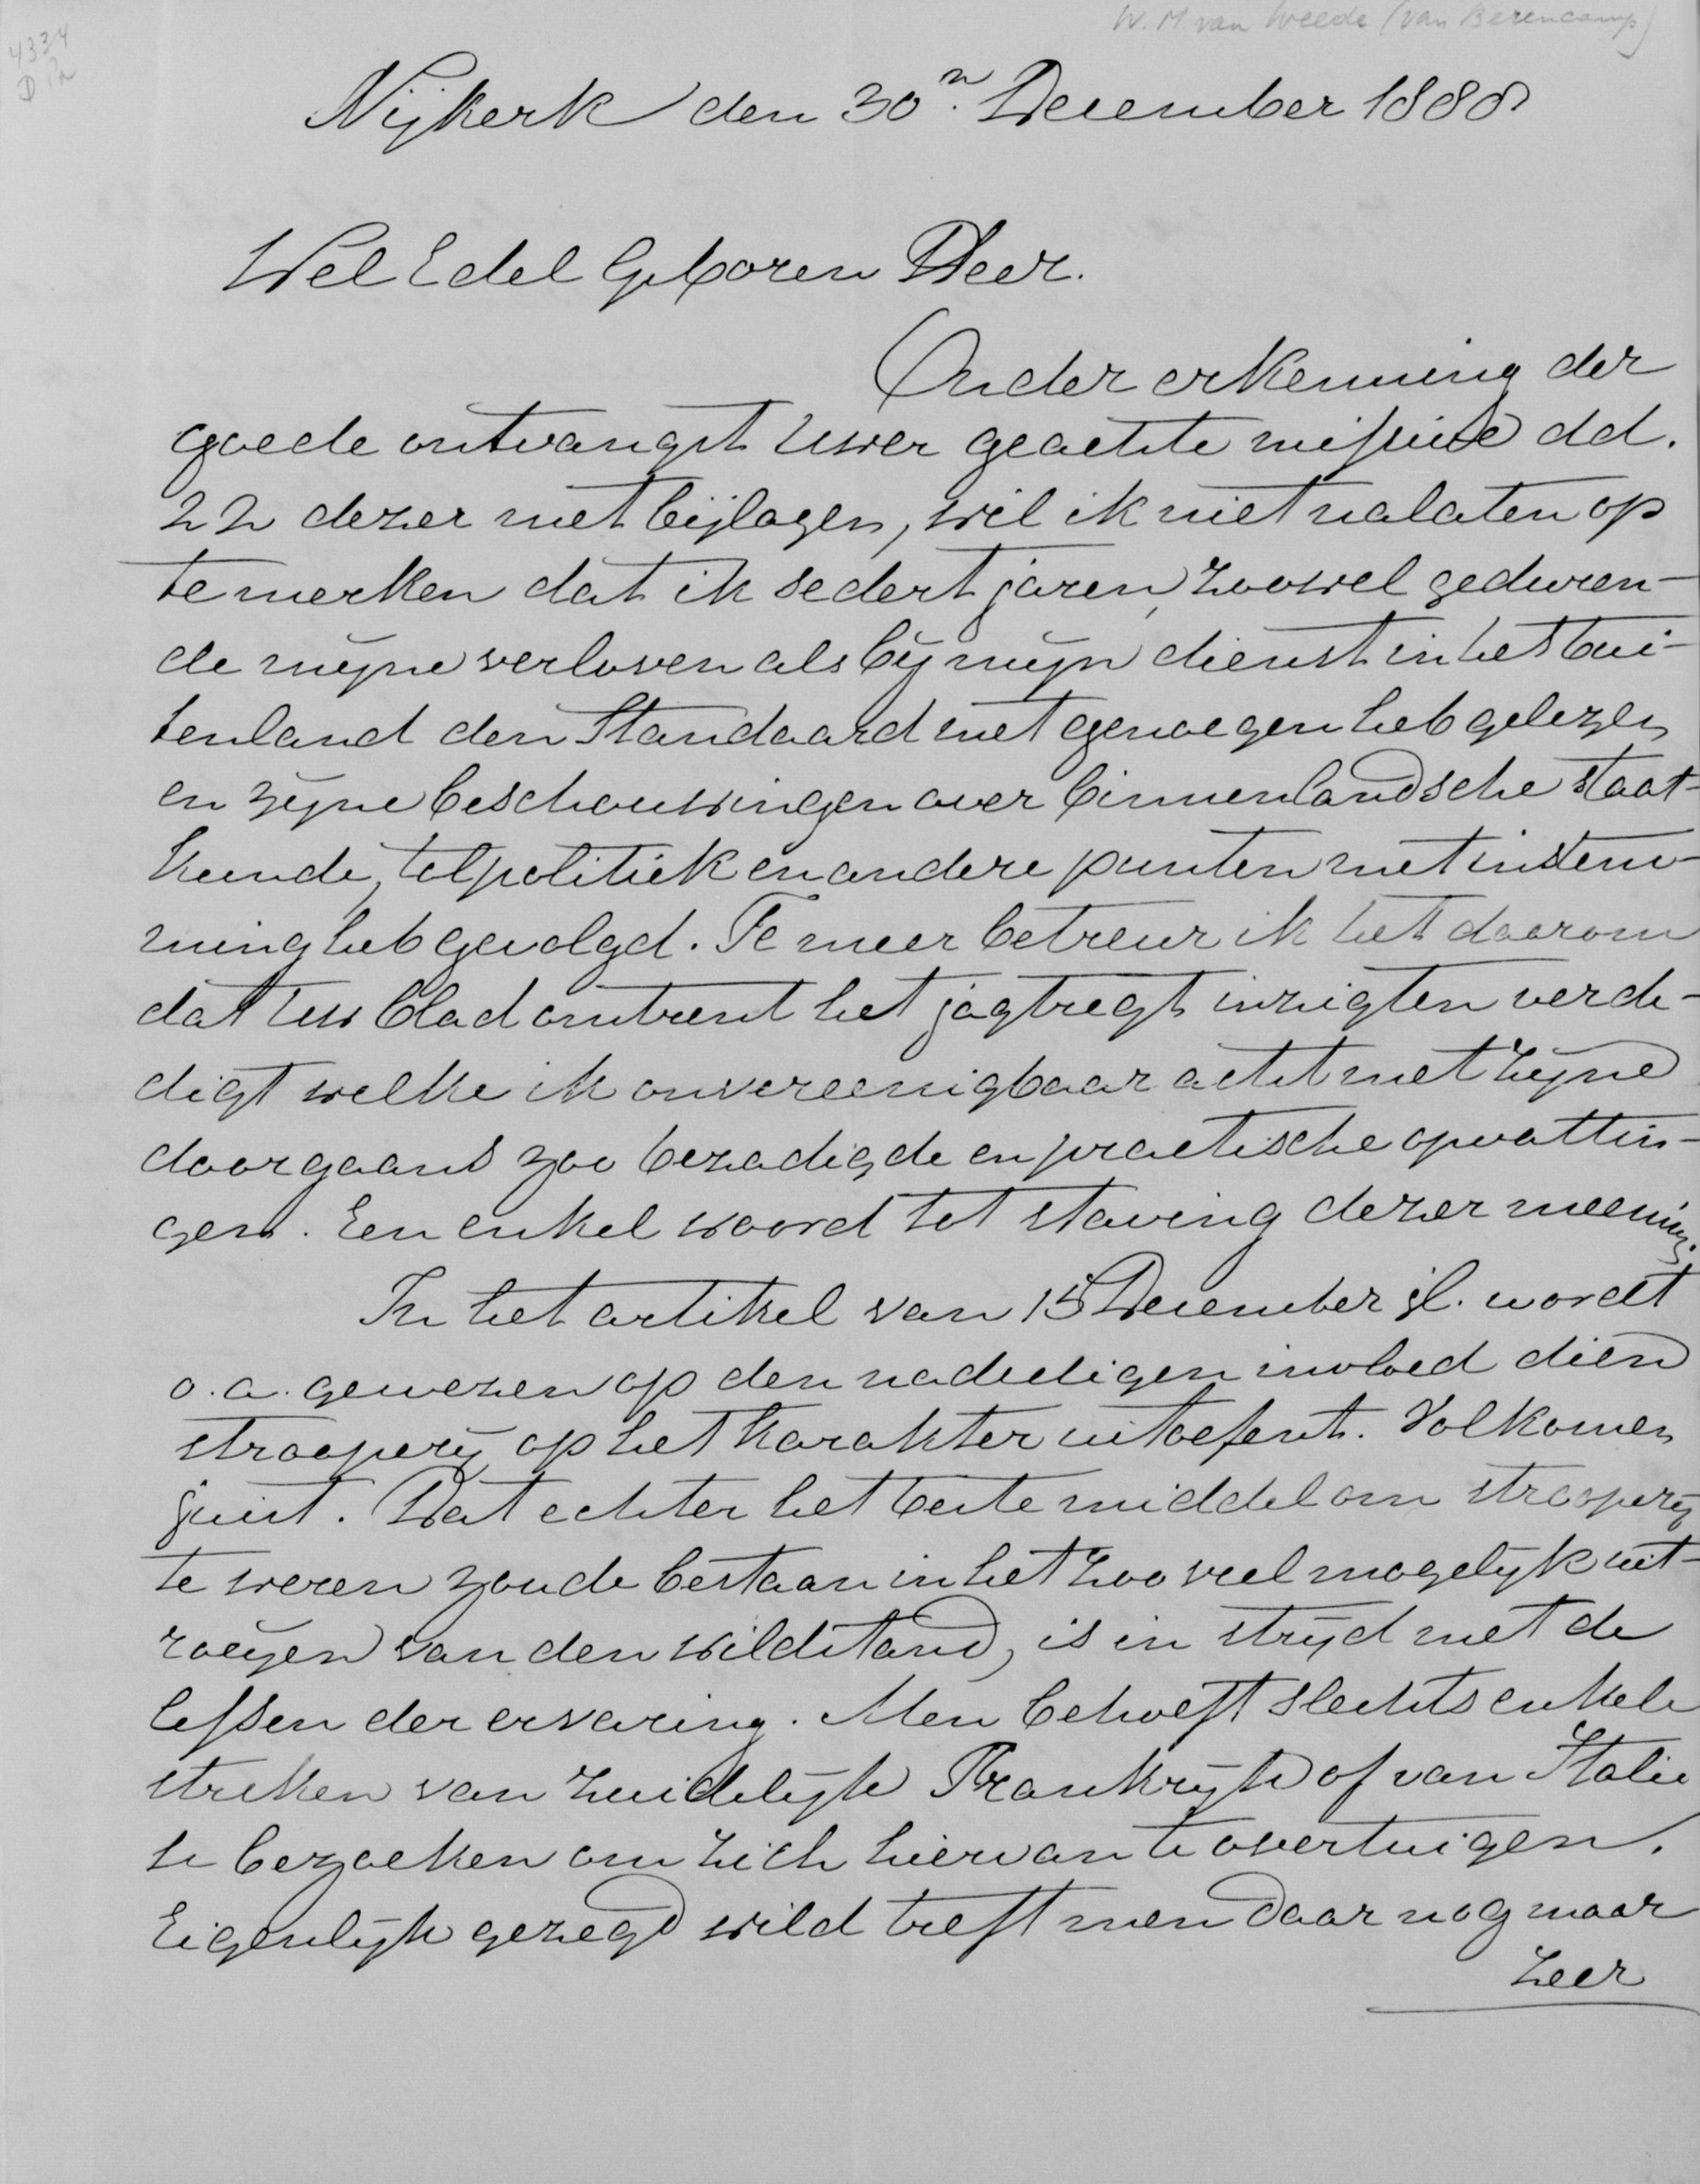 W. M. van Weede (van Berencamp)
4334
D Pa
Nijkerk den 30n. December 1888
Wel Edel Geboren Heer.
Onder erkenning der
goede ontvangst Uwer geachte missive dd.
22 dezer met bijlagen, wil ik niet nalaten op
te merken dat ik sedert jaren, zoowel geduren-
de mijne verloven als bij mijn dienst in het bui-
tenland den Standaard met genoegen heb gelezen
en zijne beschouwingen over binnenlandsche staat-
kunde, tolpolitiek en andere punten met instem-
ming heb gevolgd. Te meer betreur ik het daarom
dat Uw blad omtrent het jagtregt inzigten verde-
digt welke ik onvereenigbaar acht met zijne
doorgaans zoo bezadigde en practische opvattin-
gen. Een enkel woord tot staving dezer meening.
In het artikel van 15 December jl. wordt
o.a. gewezen op den nadeeligen invloed dien
strooperij op het karakter uitoefent. Volkomen
juist. Dat echter het beste middel om strooperij
te weren zoude bestaan in het zoo veel mogelijk uit-
roeijen van den wildstand, is in strijd met de
lessen der ervaring. Men behoeft slechts enkele
streken van zuidelijk Frankrijk of van Italie
te bezoeken om zich hiervan te overtuigen.
Eigenlijk gezegd wild treft men daar nog maar
zeer